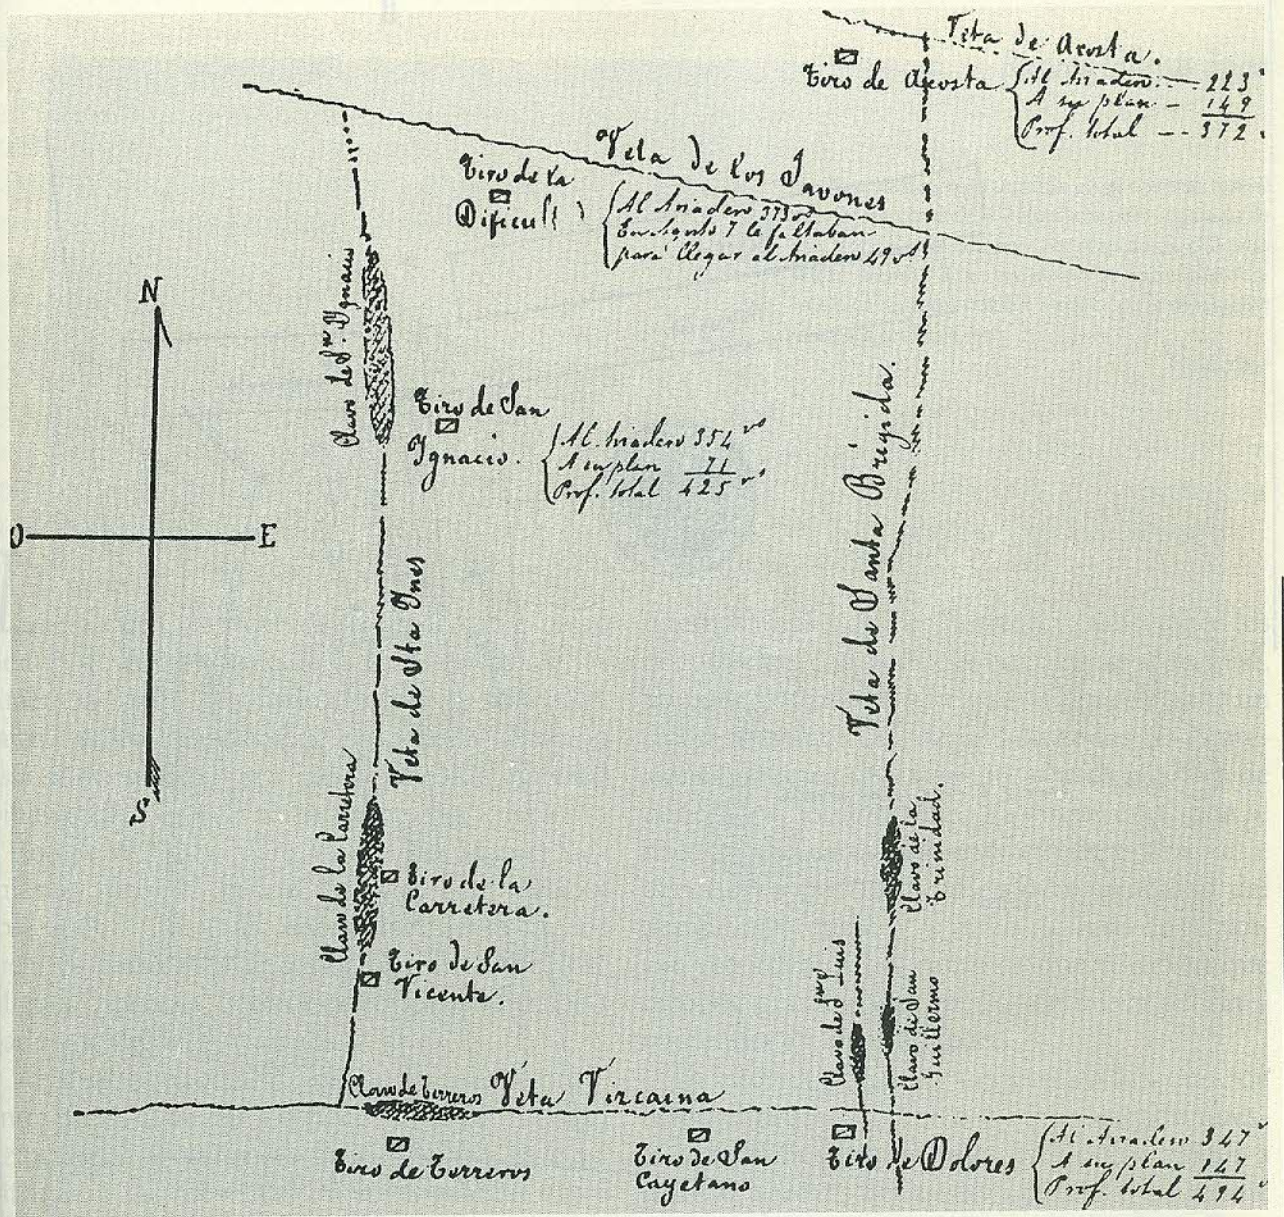 Veta de Acosta.
Tiro de Acosta
Al Ariadero 223 vs
A su plan 149
Prof. total 372
Veta de los Javones
Tiro de la
Dificul
Al Ariadero 373 vs
En Agosto 7 le faltaban
para llegar al Ariadero 49 vs
N
O
E
S.
Clavo de Sn. Ygnacio
Tiro de San
Ygnacio.
Al Ariadero 354 vs
A su plan 71
Prof. total 425 vs
Veta de Sta Ynes
Veta de Santa Brígida.
Clavo de la Carretera
Tiro de la
Carretera.
Clavo de la
Trinidad.
Tiro de San
Vicente.
Clavo de Sn Luis
Clavo de San
Guillermo
Clavo de Terreros
Veta Vizcaina
Tiro de Terreros
Tiro de San
Cayetano
Tiro de Dolores
Al Ariadero 347 v
A su plan 147
Prof. total 494 v